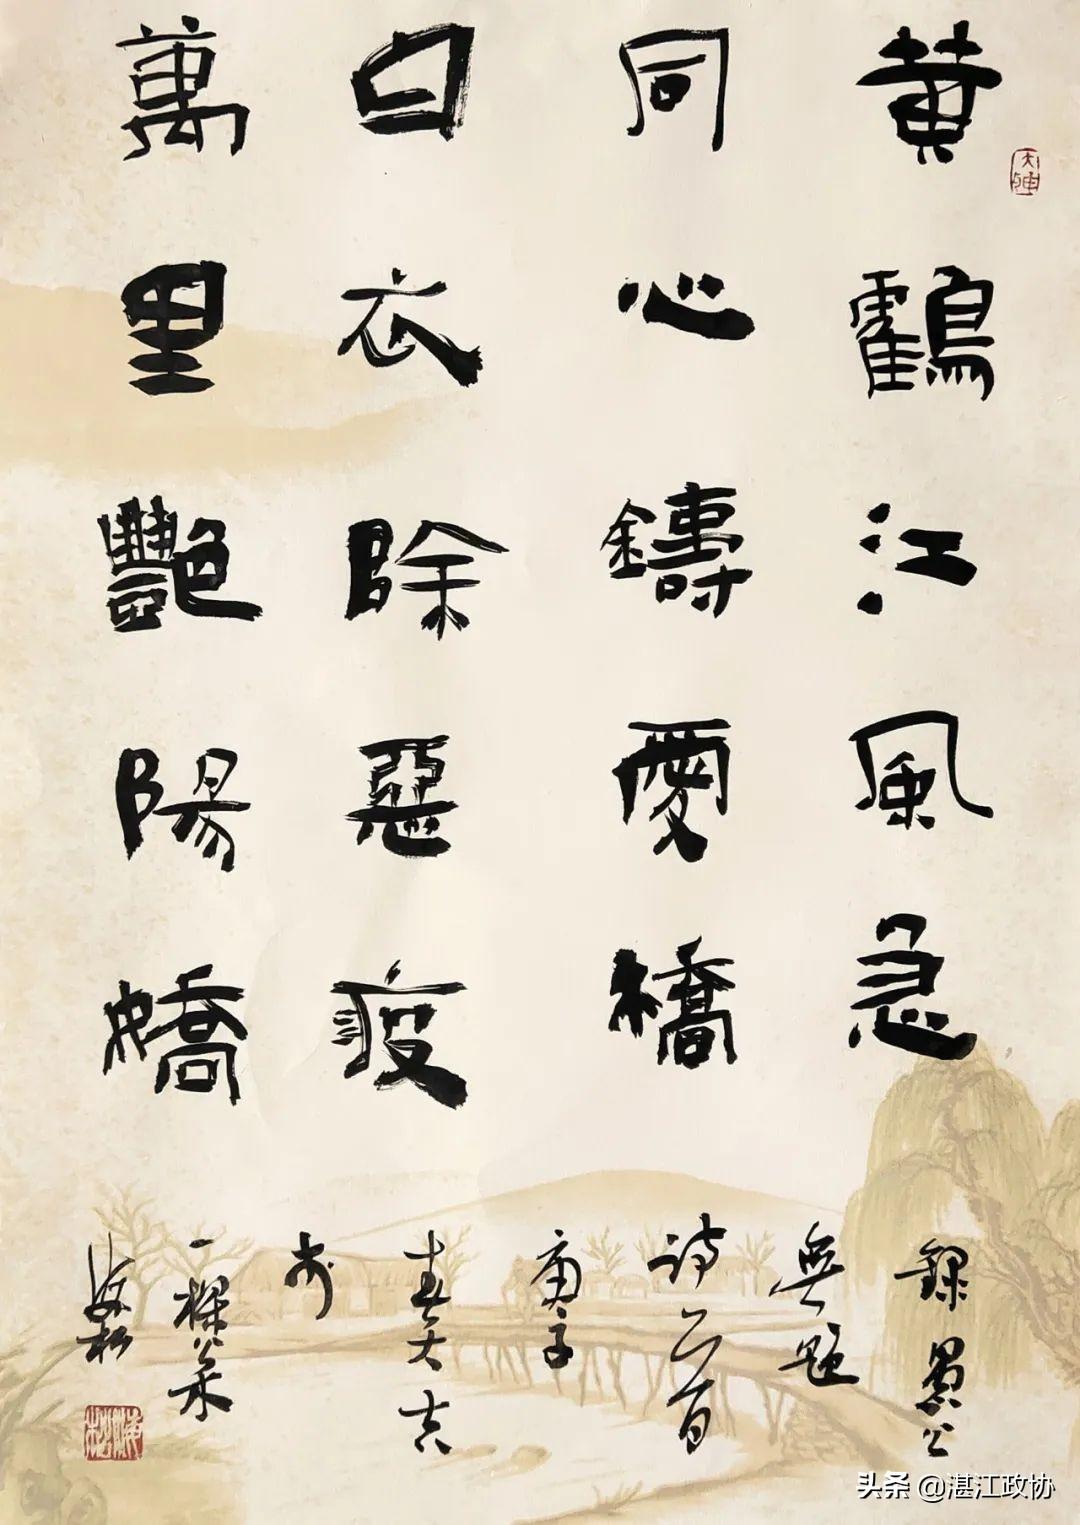 黄鸖江風急
同心鑄愛橋
白衣除惡疫
萬里艷陽嬌
錄愚公
無題
詩首
庚子
春大吉
於
一
海松
头条 @湛江政协